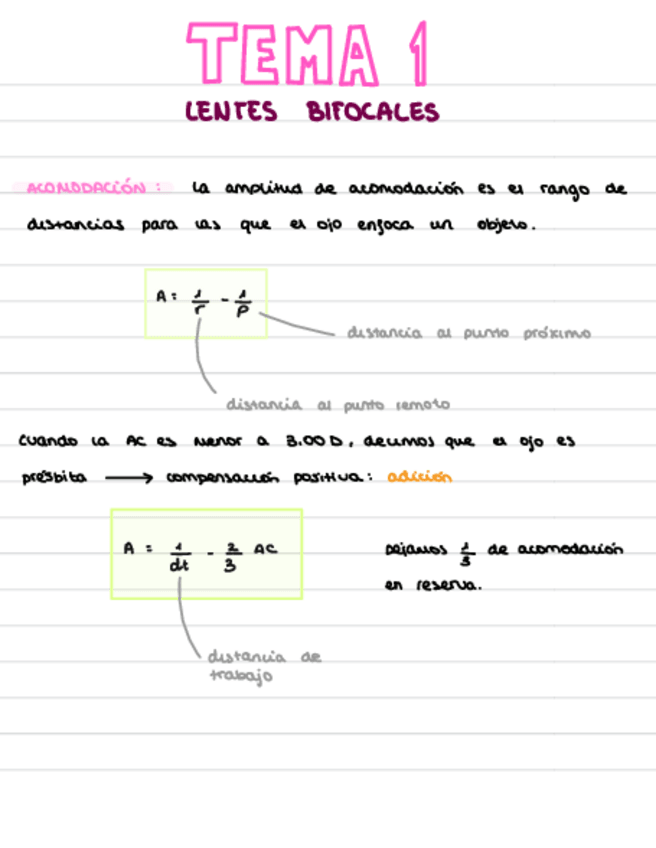 TEMA 1
LENTES BIFOCALES
ACOMODACIÓN: La amplitud de acomodación es el rango de
distancias para las que el ojo enfoca un objeto.
A = 1/r - 1/p
distancia al punto próximo
distancia al punto remoto
Cuando la AC es menor a 3.00 D, decimos que el ojo es
présbita → compensación positiva: adición
A = 1/dt - 2/3 AC
Dejamos 1/3 de acomodación
en reserva.
distancia de
trabajo